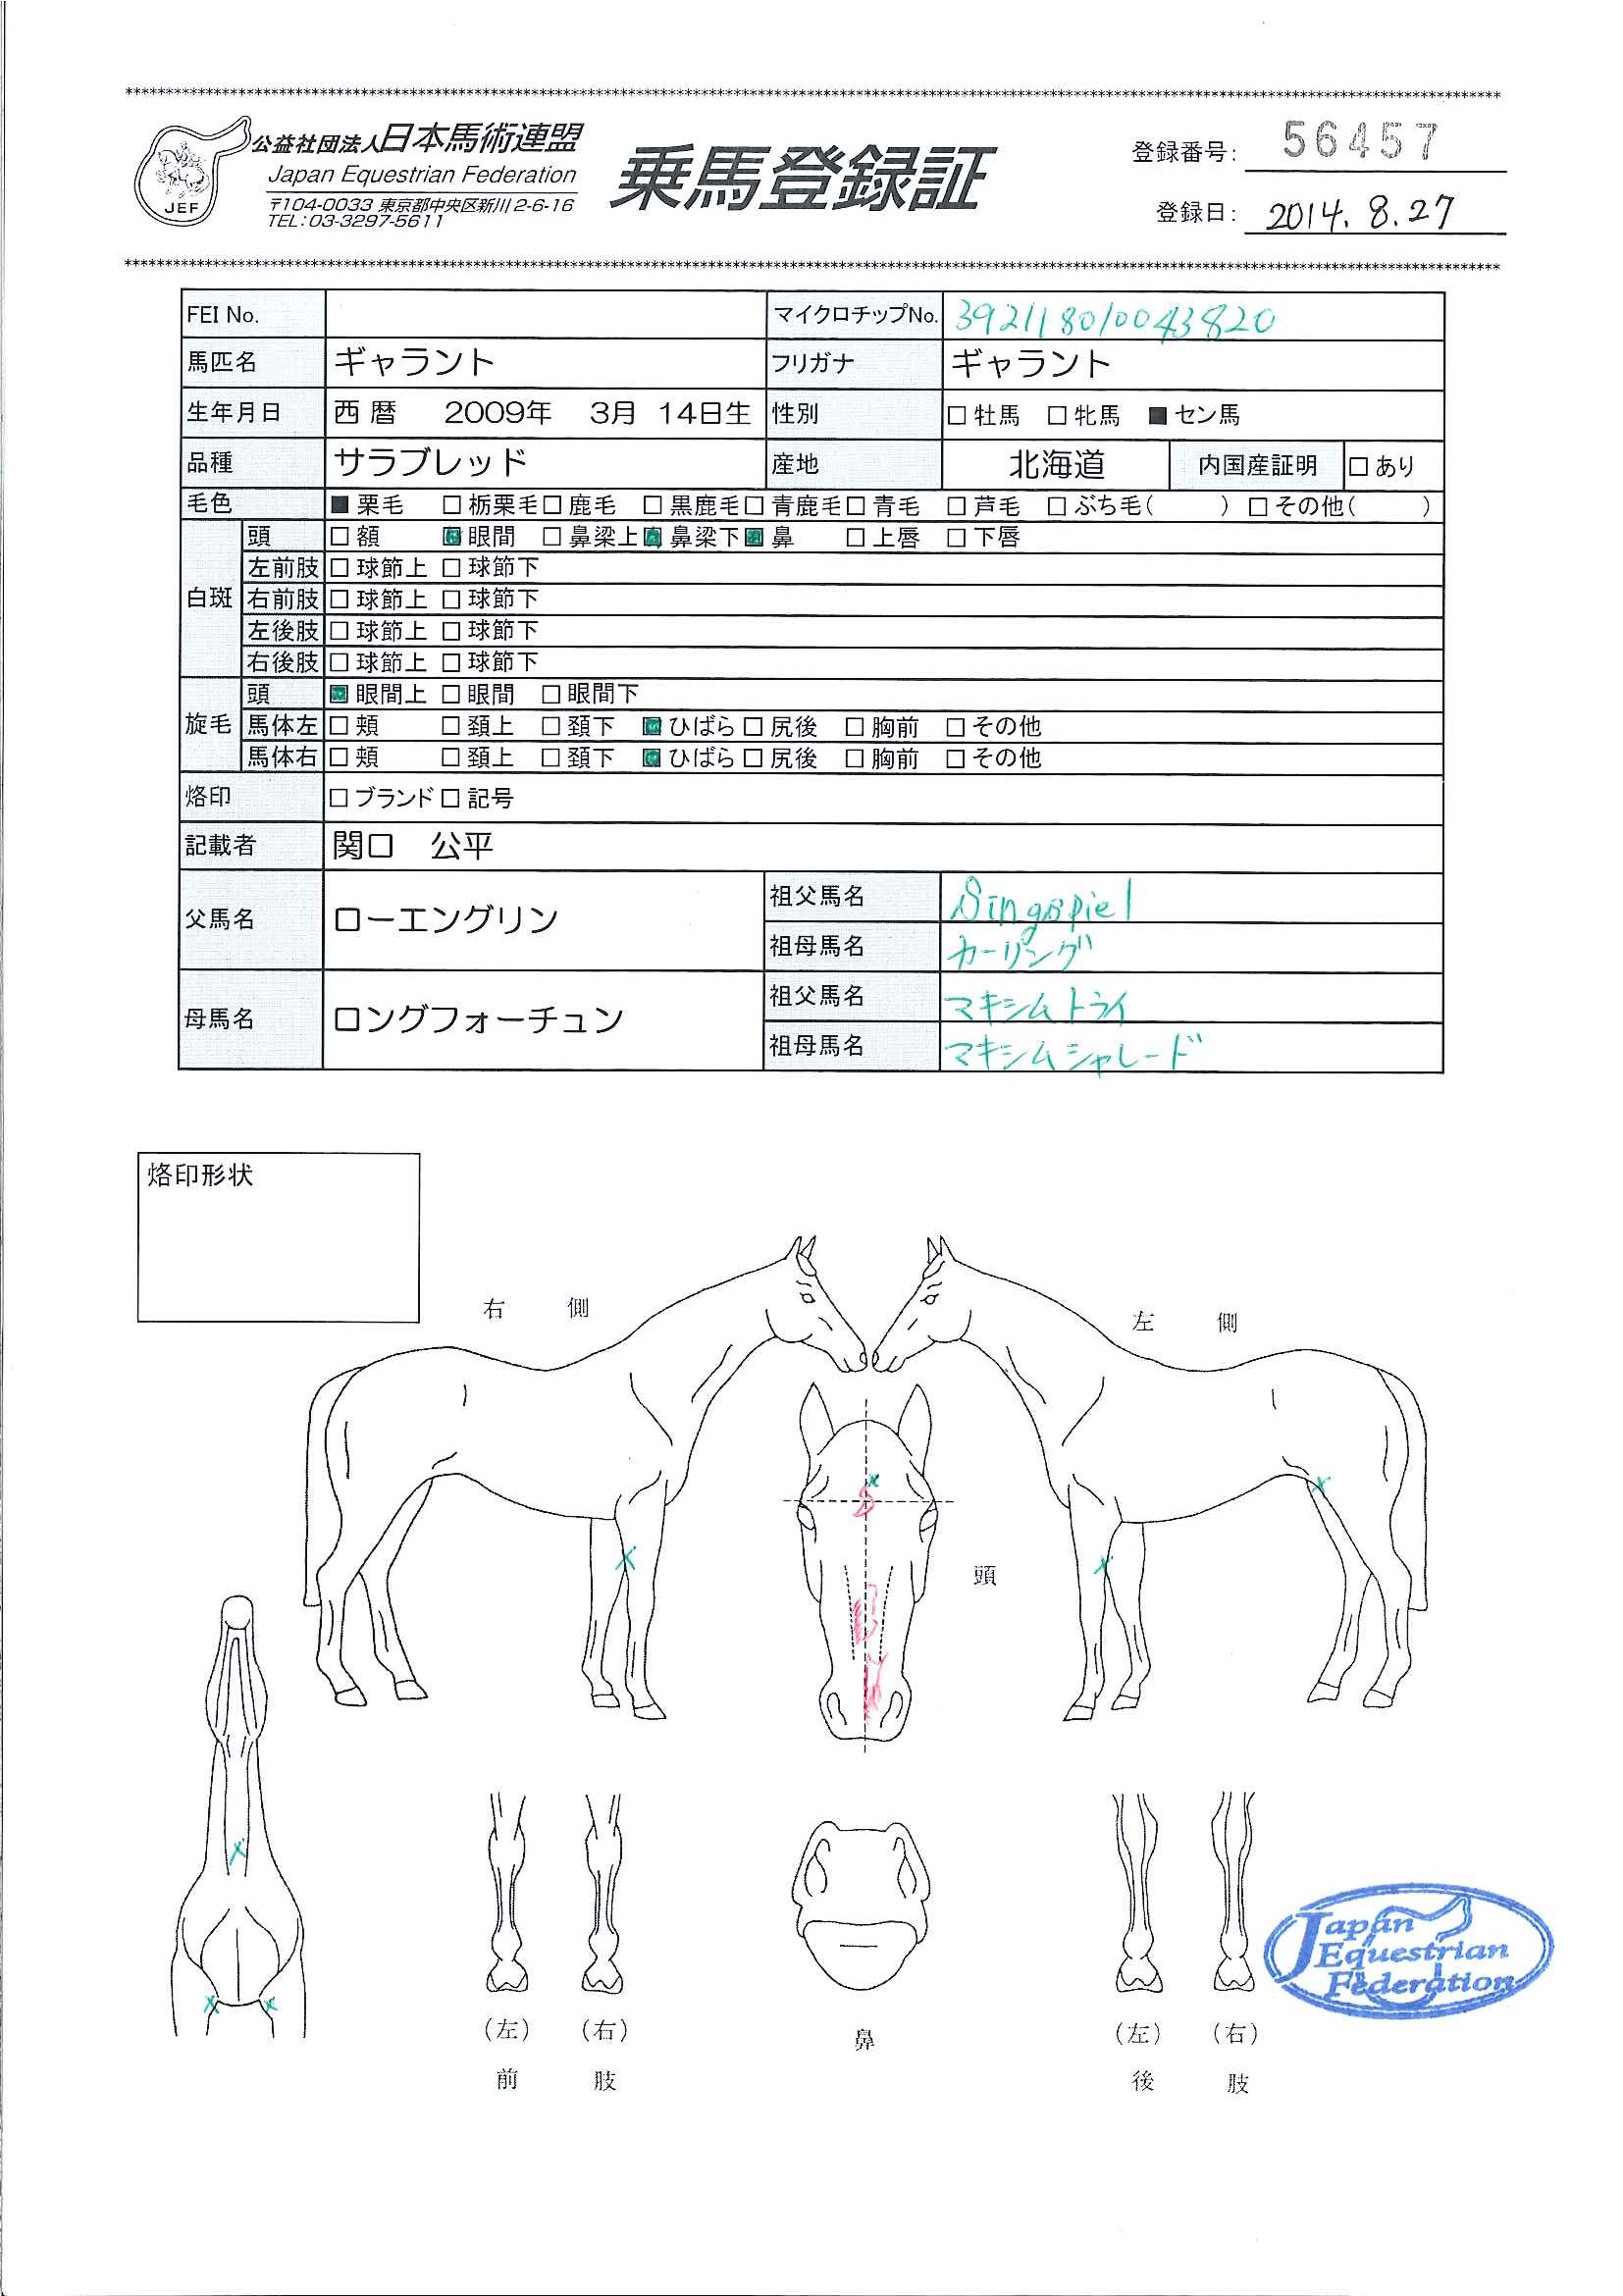 公益社団法人日本馬術連盟
Japan Equestrian Federation
〒104-0033 東京都中央区新川2-6-16
TEL:03-3297-5611
JEF
乗馬登録証
登録番号: 56457
登録日: 2014.8.27
FEI No. マイクロチップNo. 392118010043820
馬匹名 ギャラント フリガナ ギャラント
生年月日 西暦 2009年 3月 14日生 性別 □牡馬 □牝馬 ■セン馬
品種 サラブレッド 産地 北海道 内国産証明 □あり
毛色 ■栗毛 □栃栗毛 □鹿毛 □黒鹿毛 □青鹿毛 □青毛 □芦毛 □ぶち毛( ) □その他( )
白斑 頭 □額 ■眼間 □鼻梁上 ■鼻梁下 ■鼻 □上唇 □下唇
左前肢 □球節上 □球節下
右前肢 □球節上 □球節下
左後肢 □球節上 □球節下
右後肢 □球節上 □球節下
旋毛 頭 ■眼間上 □眼間 □眼間下
馬体左 □頬 □頚上 □頚下 ■ひばら □尻後 □胸前 □その他
馬体右 □頬 □頚上 □頚下 ■ひばら □尻後 □胸前 □その他
烙印 □ブランド □記号
記載者 関口 公平
父馬名 ローエングリン 祖父馬名 Singspiel
祖母馬名 カーリング
母馬名 ロングフォーチュン 祖父馬名 マキシムトライ
祖母馬名 マキシムシャレード
烙印形状
右 側
左 側
頭
Japan
Equestrian
Federation
(左) (右)
前 肢
鼻
(左) (右)
後 肢